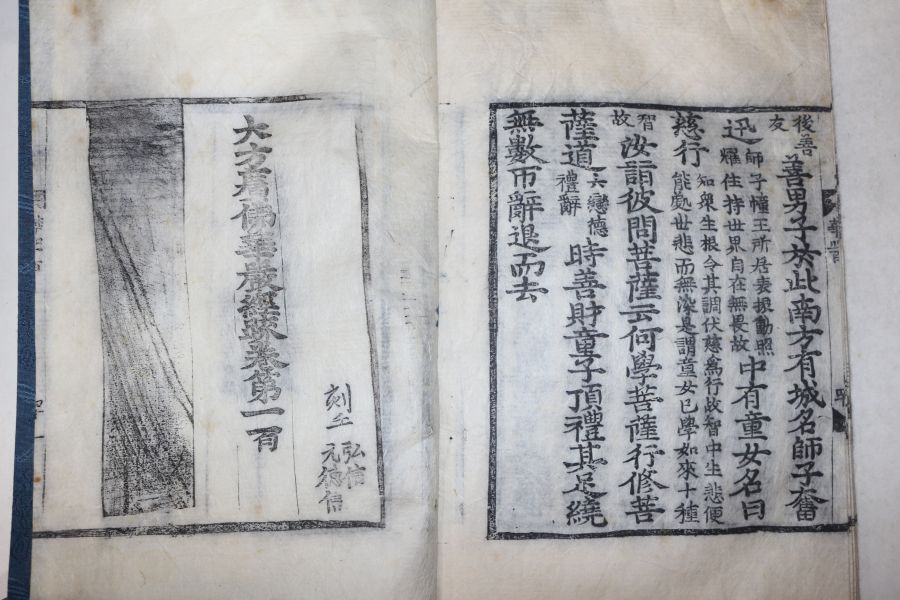 後善友善男子於此南方有城名師子奮
迅師子幢王所居表振動照耀住持世界自在無畏故中有童女名曰
慈行知衆生根令其調伏慈爲行故智中生悲便能處世悲而無染是謂童女已學如來十種
智故汝詣彼問菩薩云何學菩薩行修菩
薩道六戀德禮辭時善財童子頂禮其足繞
無數帀辭退而去
大方廣佛華嚴經疏卷第一百
刻工
弘信
元德信